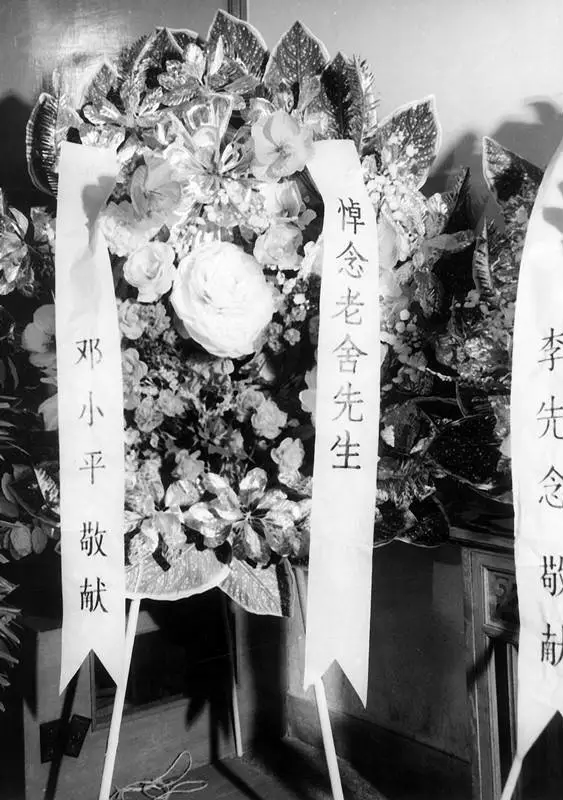 悼念老舍先生
邓小平敬献
李先念敬献